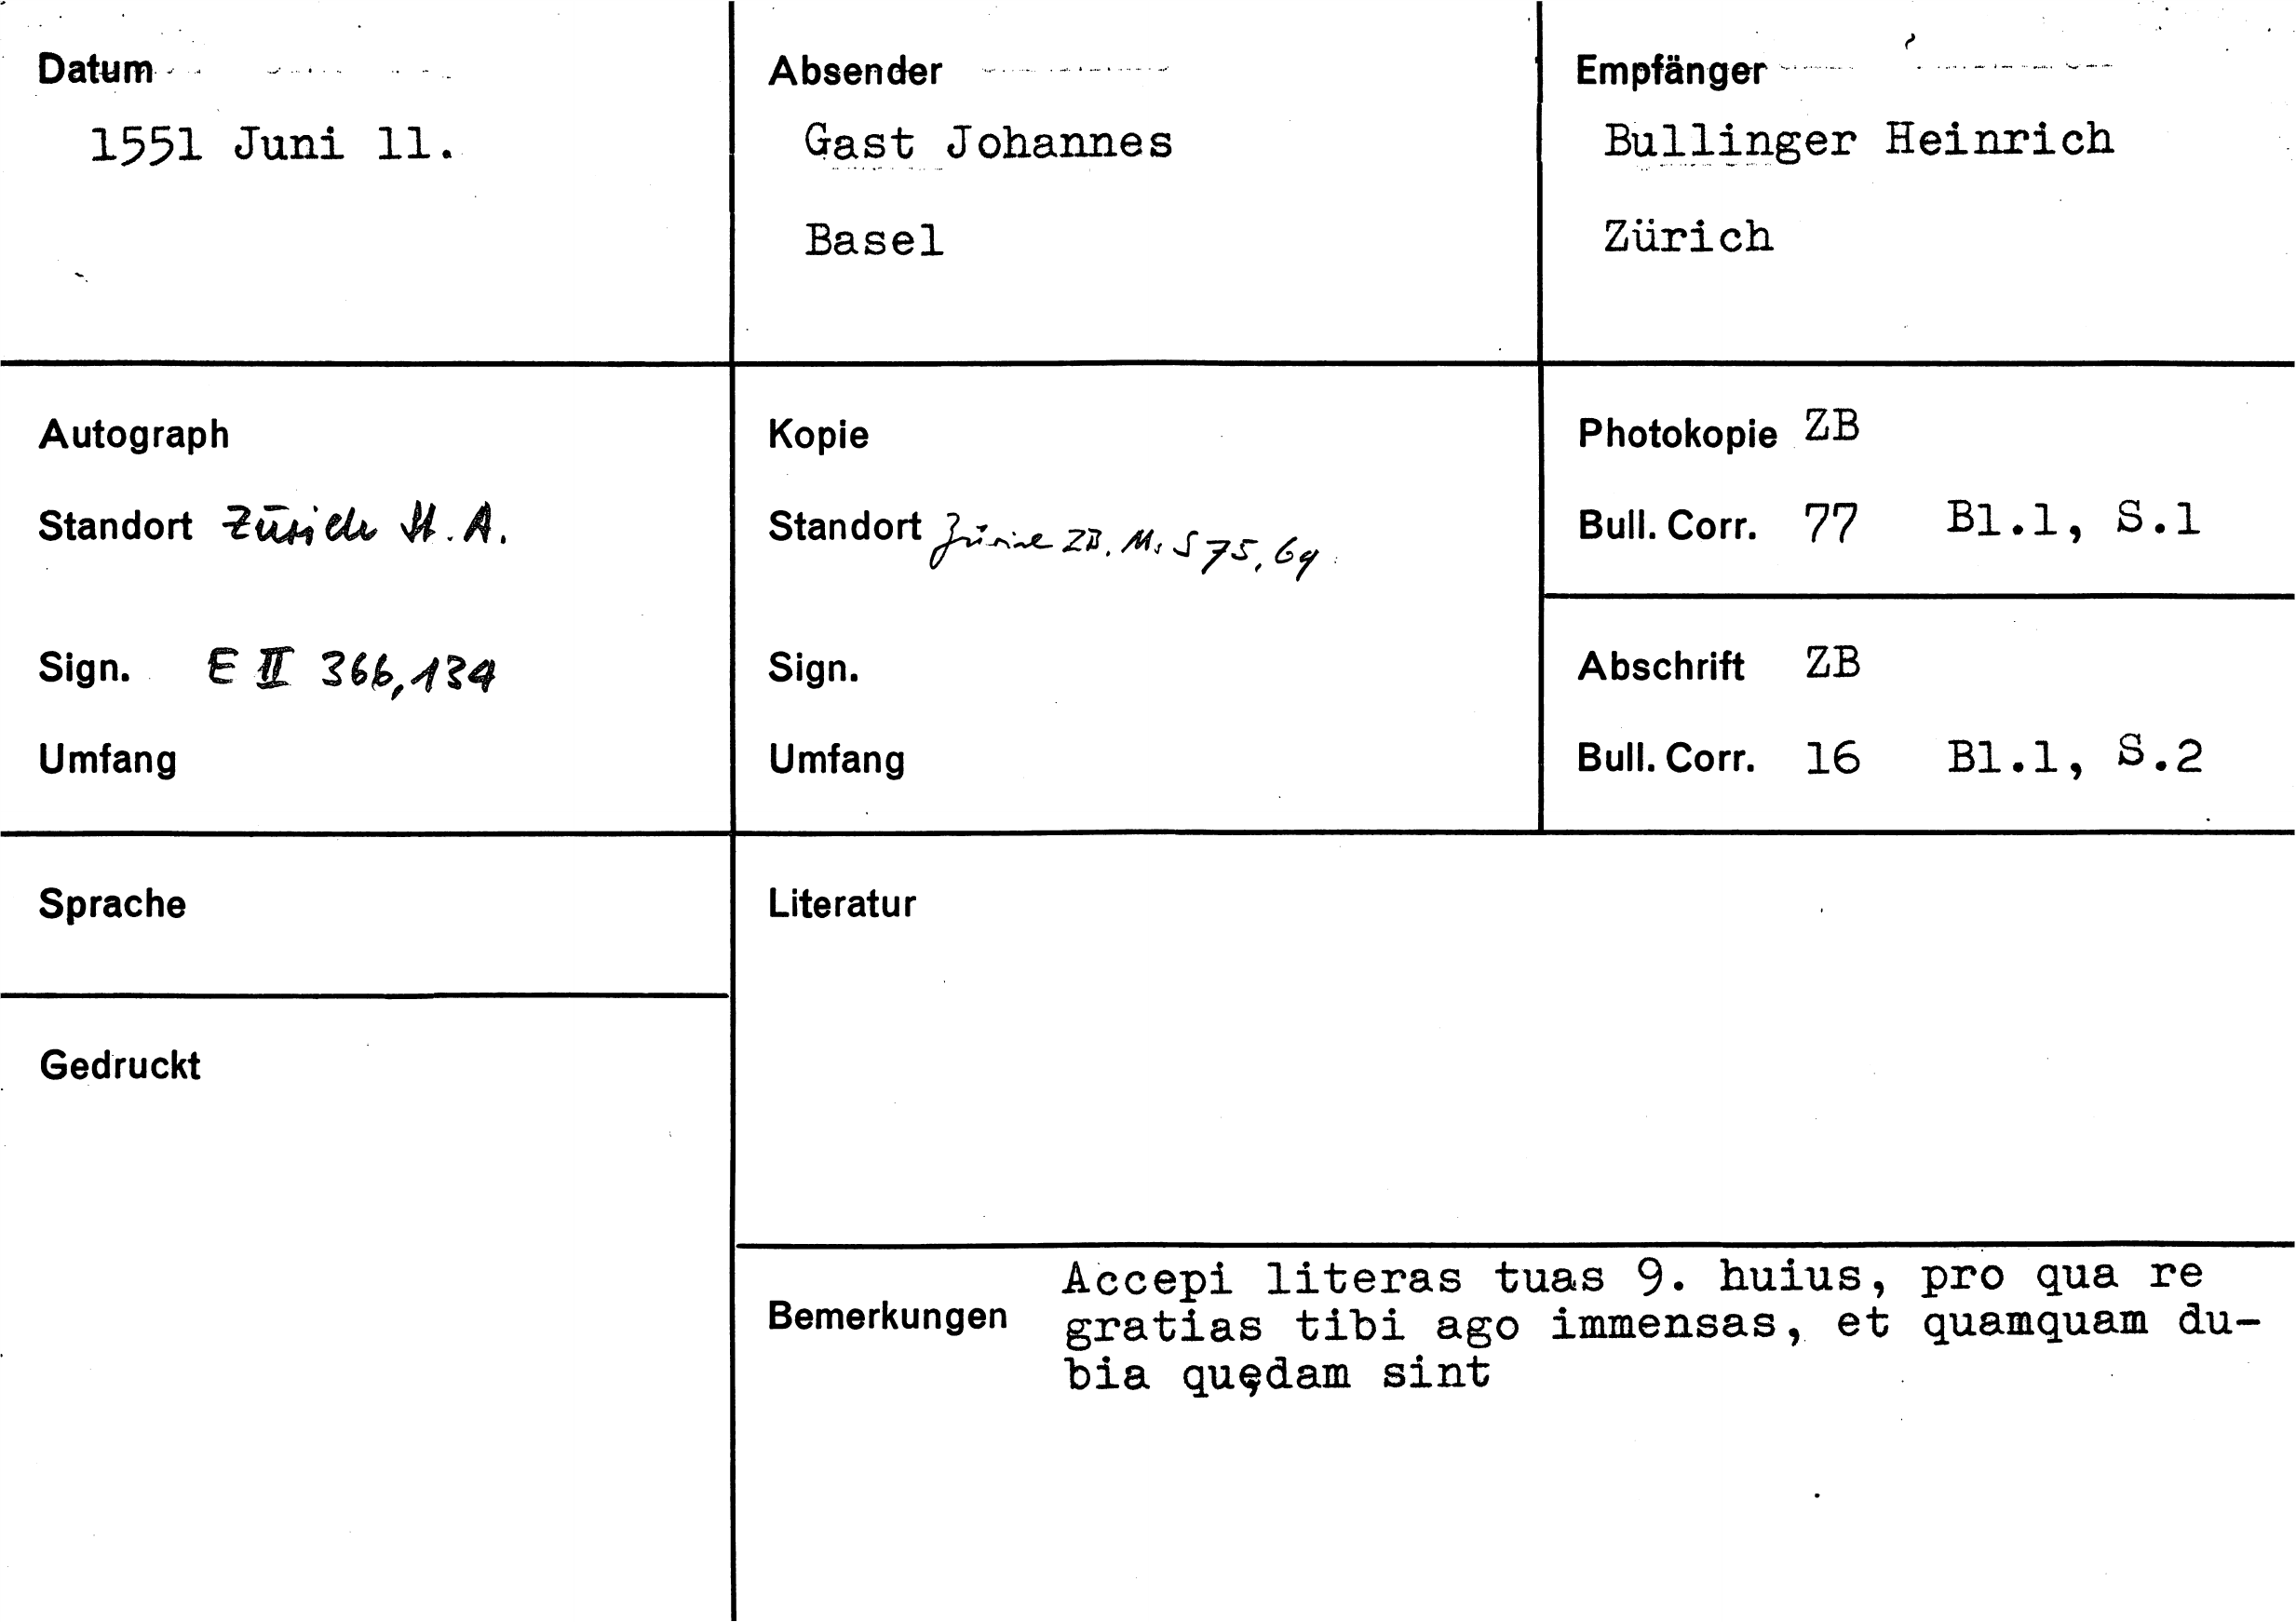 Datum
1551 Juni 11.
Absender
Gast Johannes
Basel
Empfänger
Bullinger Heinrich
Zürich
Autograph
Standort Zürich St. A.
Sign. E II 366,134
Umfang
Kopie
Standort Zürich ZB. Ms S 75, 69
Sign.
Umfang
Photokopie ZB
Bull. Corr. 77 Bl.1, S.1
Abschrift ZB
Bull. Corr. 16 Bl.1, S.2
Sprache
Gedruckt
Literatur
Bemerkungen
Accepi literas tuas 9. huius, pro qua re
gratias tibi ago immensas, et quamquam du-
bia quędam sint